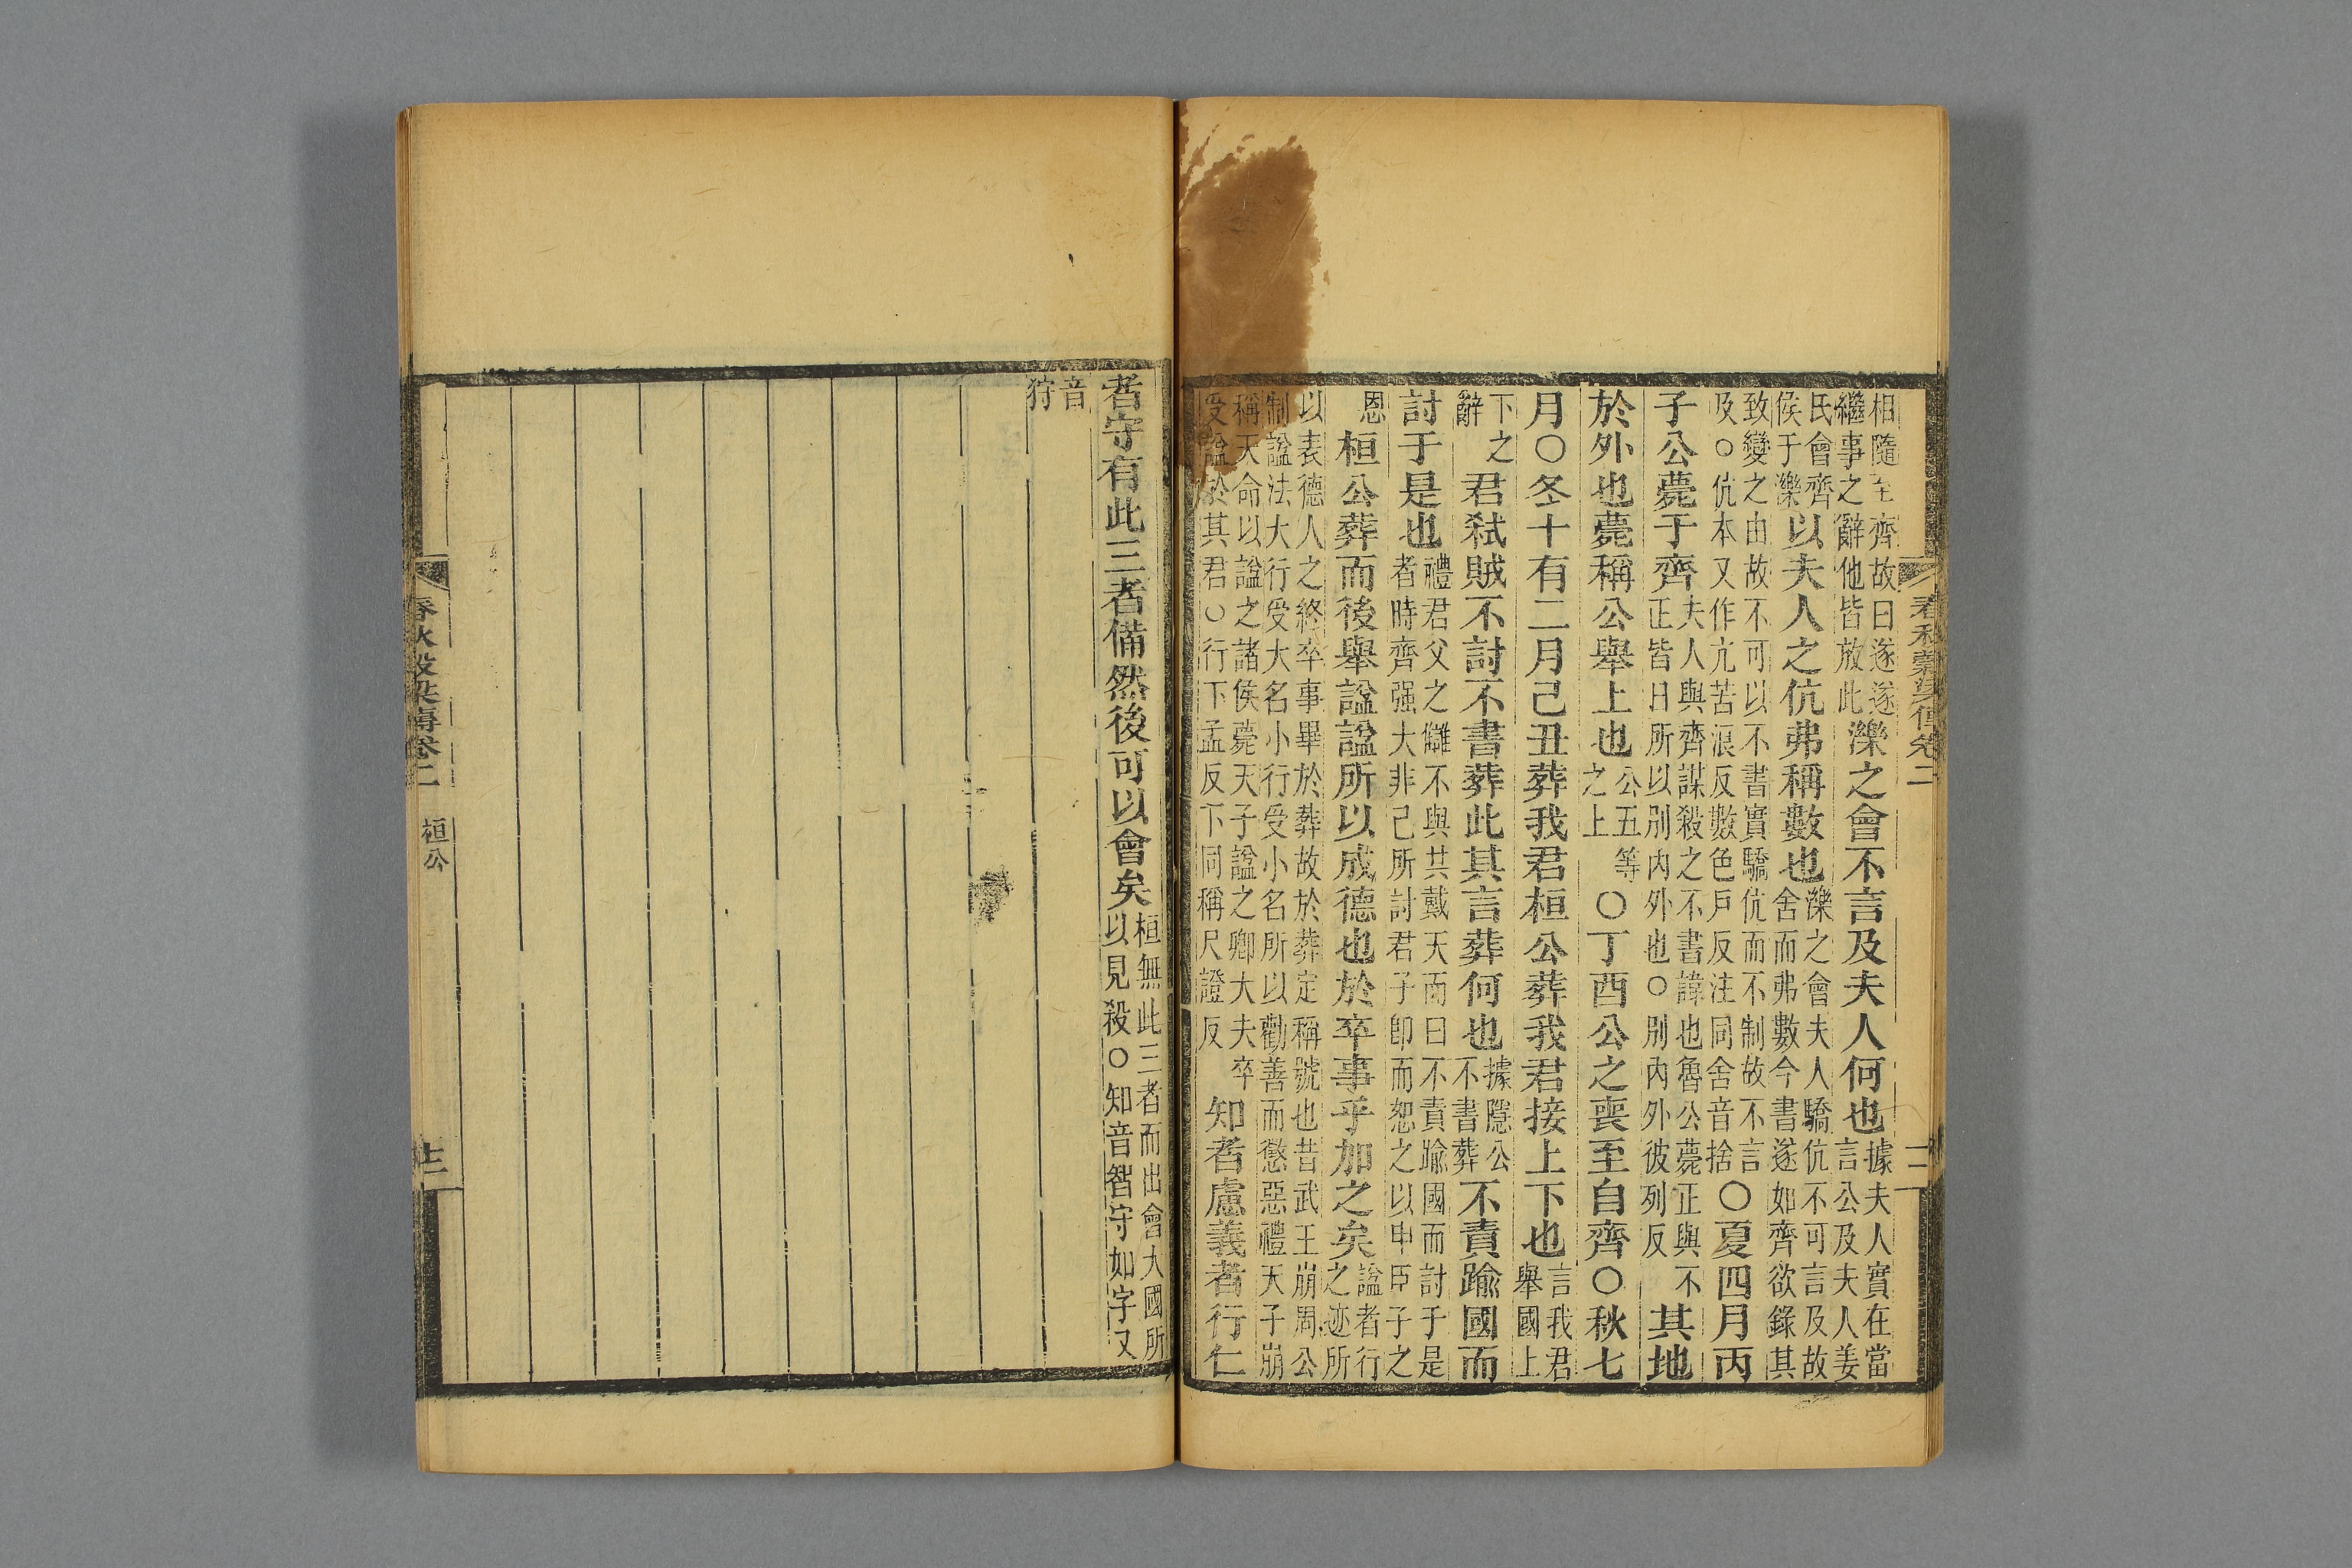 春秋穀梁傳卷二
十二
相隨至齊故曰遂遂繼事之辭他皆放此濼之會不言及夫人何也據夫人實在當言公及夫人姜
氏會齊侯于濼以夫人之伉弗稱數也濼之會夫人驕伉不可言及故舍而弗數今書遂如齊欲錄其
致變之由故不可以不書實驕伉而不制故不言及○伉本又作亢苦浪反數色戶反注同舍音捨○夏四月丙
子公薨于齊夫人與齊謀殺之不書諱也魯公薨正與不正皆日所以別內外也○別內外彼列反其地
於外也薨稱公舉上也公五等之上○丁酉公之喪至自齊○秋七
月○冬十有二月己丑葬我君桓公葬我君接上下也言我君舉國上
下之辭君弒賊不討不書葬此其言葬何也據隱公不書葬不責踰國而
討于是也禮君父之讎不與共戴天而曰不責踰國而討于是者時齊强大非己所討君子卽而恕之以申臣子之
恩桓公葬而後舉諡諡所以成德也於卒事乎加之矣諡者行之迹所
以表德人之終卒事畢於葬故於葬定稱號也昔武王崩周公制諡法大行受大名小行受小名所以勸善而懲惡禮天子崩
稱天命以諡之諸侯薨天子諡之卿大夫卒受諡於其君○行下孟反下同稱尺證反知者慮義者行仁
者守有此三者備然後可以會矣桓無此三者而出會大國所以見殺○知音智守如字又
音狩
春秋穀梁傳卷二
桓公
十二